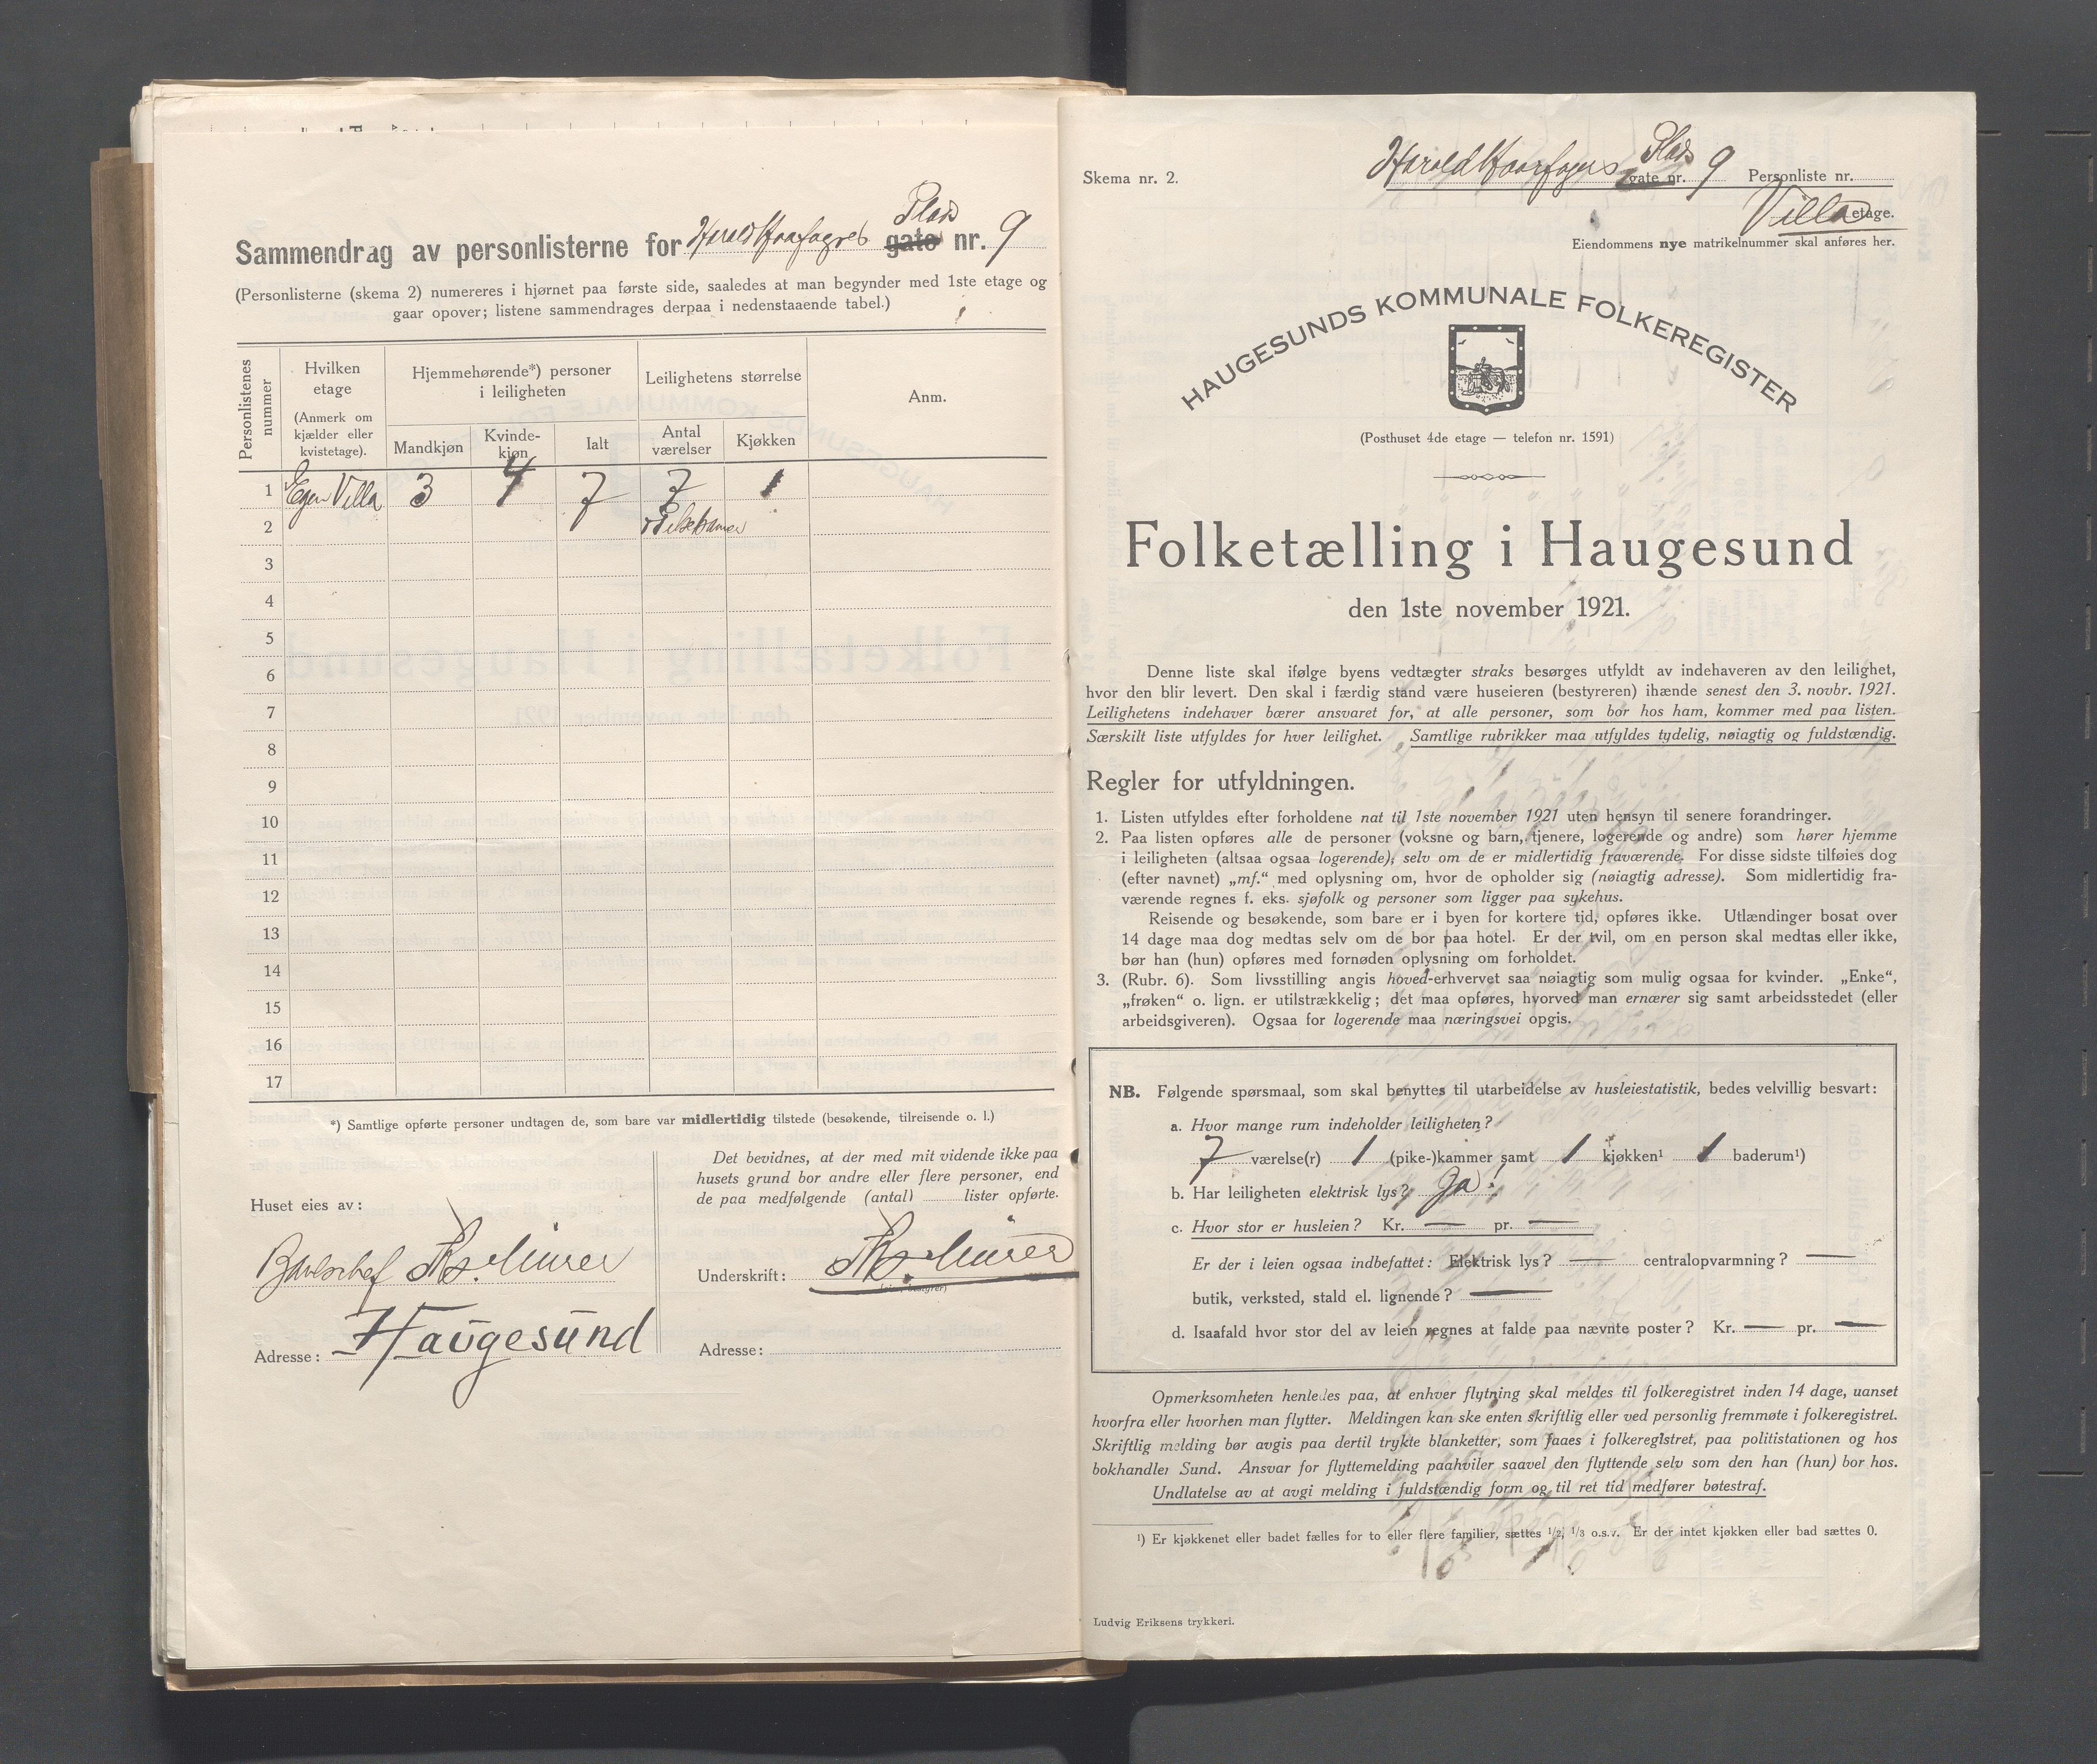 Sammendrag av personlisterne for Harald Haarfagres gate Plads nr. 9
(Personlisterne (skema 2) numereres i hjørnet paa første side, saaledes at man begynder med 1ste etage og
gaar opover; listene sammendrages derpaa i nedenstaaende tabel.)
Personlistenes nummer
Hvilken etage
(Anmerk om kjælder eller kvistetage).
Hjemmehørende*) personer i leiligheten
Mandkjøn
Kvindekjøn
Ialt
Leilighetens størrelse
Antal værelser
Kjøkken
Anm.
1 Egen Villa 3 4 7 7 1
2
3
4
5
6
7
8
9
10
11
12
13
14
15
16
17
*) Samtlige opførte personer undtagen de, som bare var midlertidig tilstede (besøkende, tilreisende o. l.)
Huset eies av:
Adresse: Haugesund
Det bevidnes, at der med mit vidende ikke paa
husets grund bor andre eller flere personer, end
de paa medfølgende (antal) lister opførte.
Underskrift:
Adresse:
Skema nr. 2.
Harald Haarfagres gate nr. Plads 9 Personliste nr.
Villa etage.
Eiendommens nye matrikelnummer skal anføres her.
HAUGESUNDS KOMMUNALE FOLKEREGISTER
(Posthuset 4de etage — telefon nr. 1591)
Folketælling i Haugesund
den 1ste november 1921.
Denne liste skal ifølge byens vedtægter straks besørges utfyldt av indehaveren av den leilighet,
hvor den blir levert. Den skal i færdig stand være huseieren (bestyreren) ihænde senest den 3. novbr. 1921.
Leilighetens indehaver bærer ansvaret for, at alle personer, som bor hos ham, kommer med paa listen.
Særskilt liste utfyldes for hver leilighet. Samtlige rubrikker maa utfyldes tydelig, nøiagtig og fuldstændig.
Regler for utfyldningen.
1. Listen utfyldes efter forholdene nat til 1ste november 1921 uten hensyn til senere forandringer.
2. Paa listen opføres alle de personer (voksne og barn, tjenere, logerende og andre) som hører hjemme
i leiligheten (altsaa ogsaa logerende), selv om de er midlertidig fraværende. For disse sidste tilføies dog
(efter navnet) „mf.“ med oplysning om, hvor de opholder sig (nøiagtig adresse). Som midlertidig fra-
værende regnes f. eks. sjøfolk og personer som ligger paa sykehus.
Reisende og besøkende, som bare er i byen for kortere tid, opføres ikke. Utlændinger bosat over
14 dage maa dog medtas selv om de bor paa hotel. Er der tvil, om en person skal medtas eller ikke,
bør han (hun) opføres med fornøden oplysning om forholdet.
3. (Rubr. 6). Som livsstilling angis hoved-erhvervet saa nøiagtig som mulig ogsaa for kvinder. „Enke“,
„frøken“ o. lign. er utilstrækkelig; det maa opføres, hvorved man ernærer sig samt arbeidsstedet (eller
arbeidsgiveren). Ogsaa for logerende maa næringsvei opgis.
NB. Følgende spørsmaal, som skal benyttes til utarbeidelse av husleiestatistik, bedes velvillig besvart:
a. Hvor mange rum indeholder leiligheten?
7 værelse(r) 1 (pike-)kammer samt 1 kjøkken¹ 1 baderum¹)
b. Har leiligheten elektrisk lys? Ja!
c. Hvor stor er husleien? Kr. — pr. —
Er der i leien ogsaa indbefattet: Elektrisk lys? — centralopvarmning? —
butik, verksted, stald el. lignende? —
d. Isaafald hvor stor del av leien regnes at falde paa nævnte poster? Kr. — pr. —
Opmerksomheten henledes paa, at enhver flytning skal meldes til folkeregistret inden 14 dage, uanset
hvorfra eller hvorhen man flytter. Meldingen kan ske enten skriftlig eller ved personlig fremmøte i folkeregistret.
Skriftlig melding bør avgis paa dertil trykte blanketter, som faaes i folkeregistret, paa politistationen og hos
bokhandler Sund. Ansvar for flyttemelding paahviler saavel den flyttende selv som den han (hun) bor hos.
Undlatelse av at avgi melding i fuldstændig form og til ret tid medfører bøtestraf.
¹) Er kjøkkenet eller badet fælles for to eller flere familier, sættes 1/2, 1/3 o.s.v. Er der intet kjøkken eller bad sættes 0.
Ludvig Eriksens trykkeri.